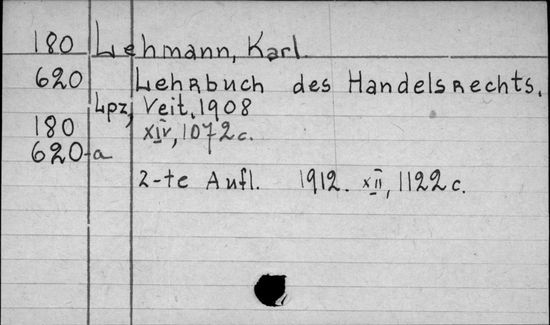 180 Lehmann, Karl.
620 Lehrbuch des Handelsrechts.
Lpz, Veit, 1908
180 XIV, 1072 c.
620-a
2-te Aufl. 1912. XII, 1122 c.